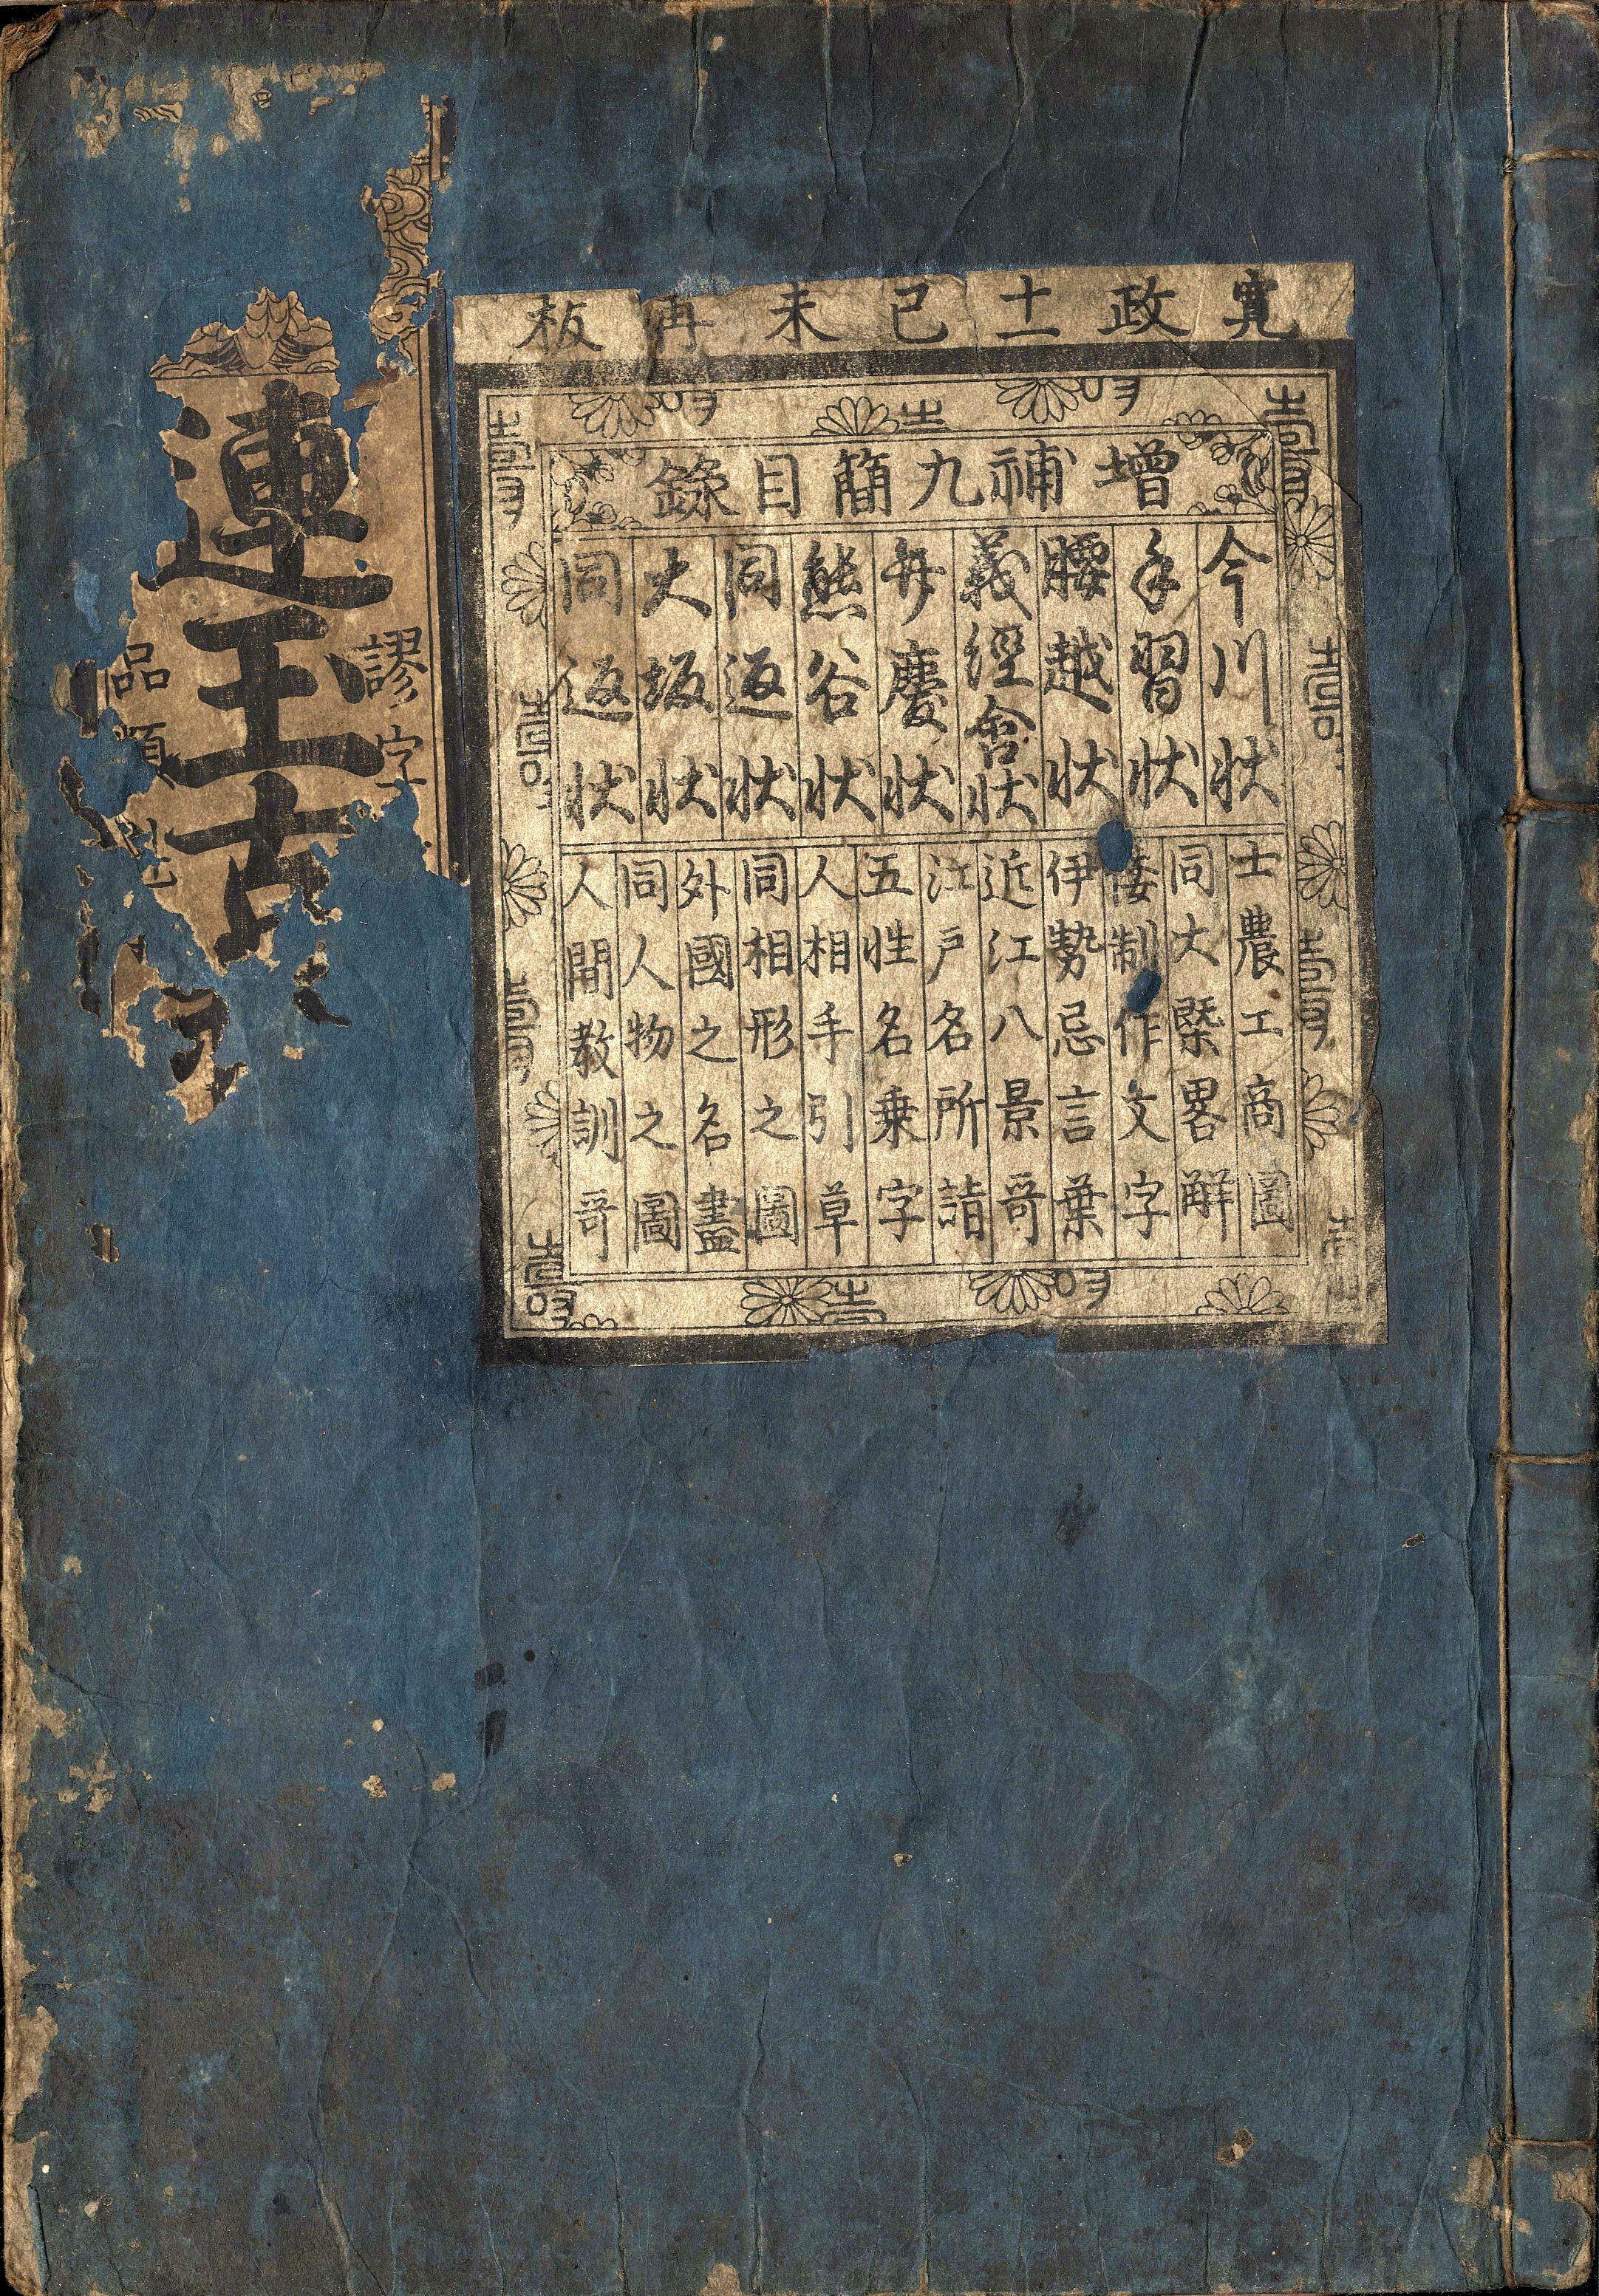 寛政十一己未再板
増補九簡目録
今川状
手習状
腰越状
義經含状
弁慶状
熊谷状
同返状
大坂状
同返状
士農工商圖
同大槩畧解
倭制作文字
伊勢忌言葉
近江八景哥
江戸名所詣
五性名乗字
人相手引草
同相形之圖
外國之名盡
同人物之圖
人間教訓哥
謬字
連玉古
品類